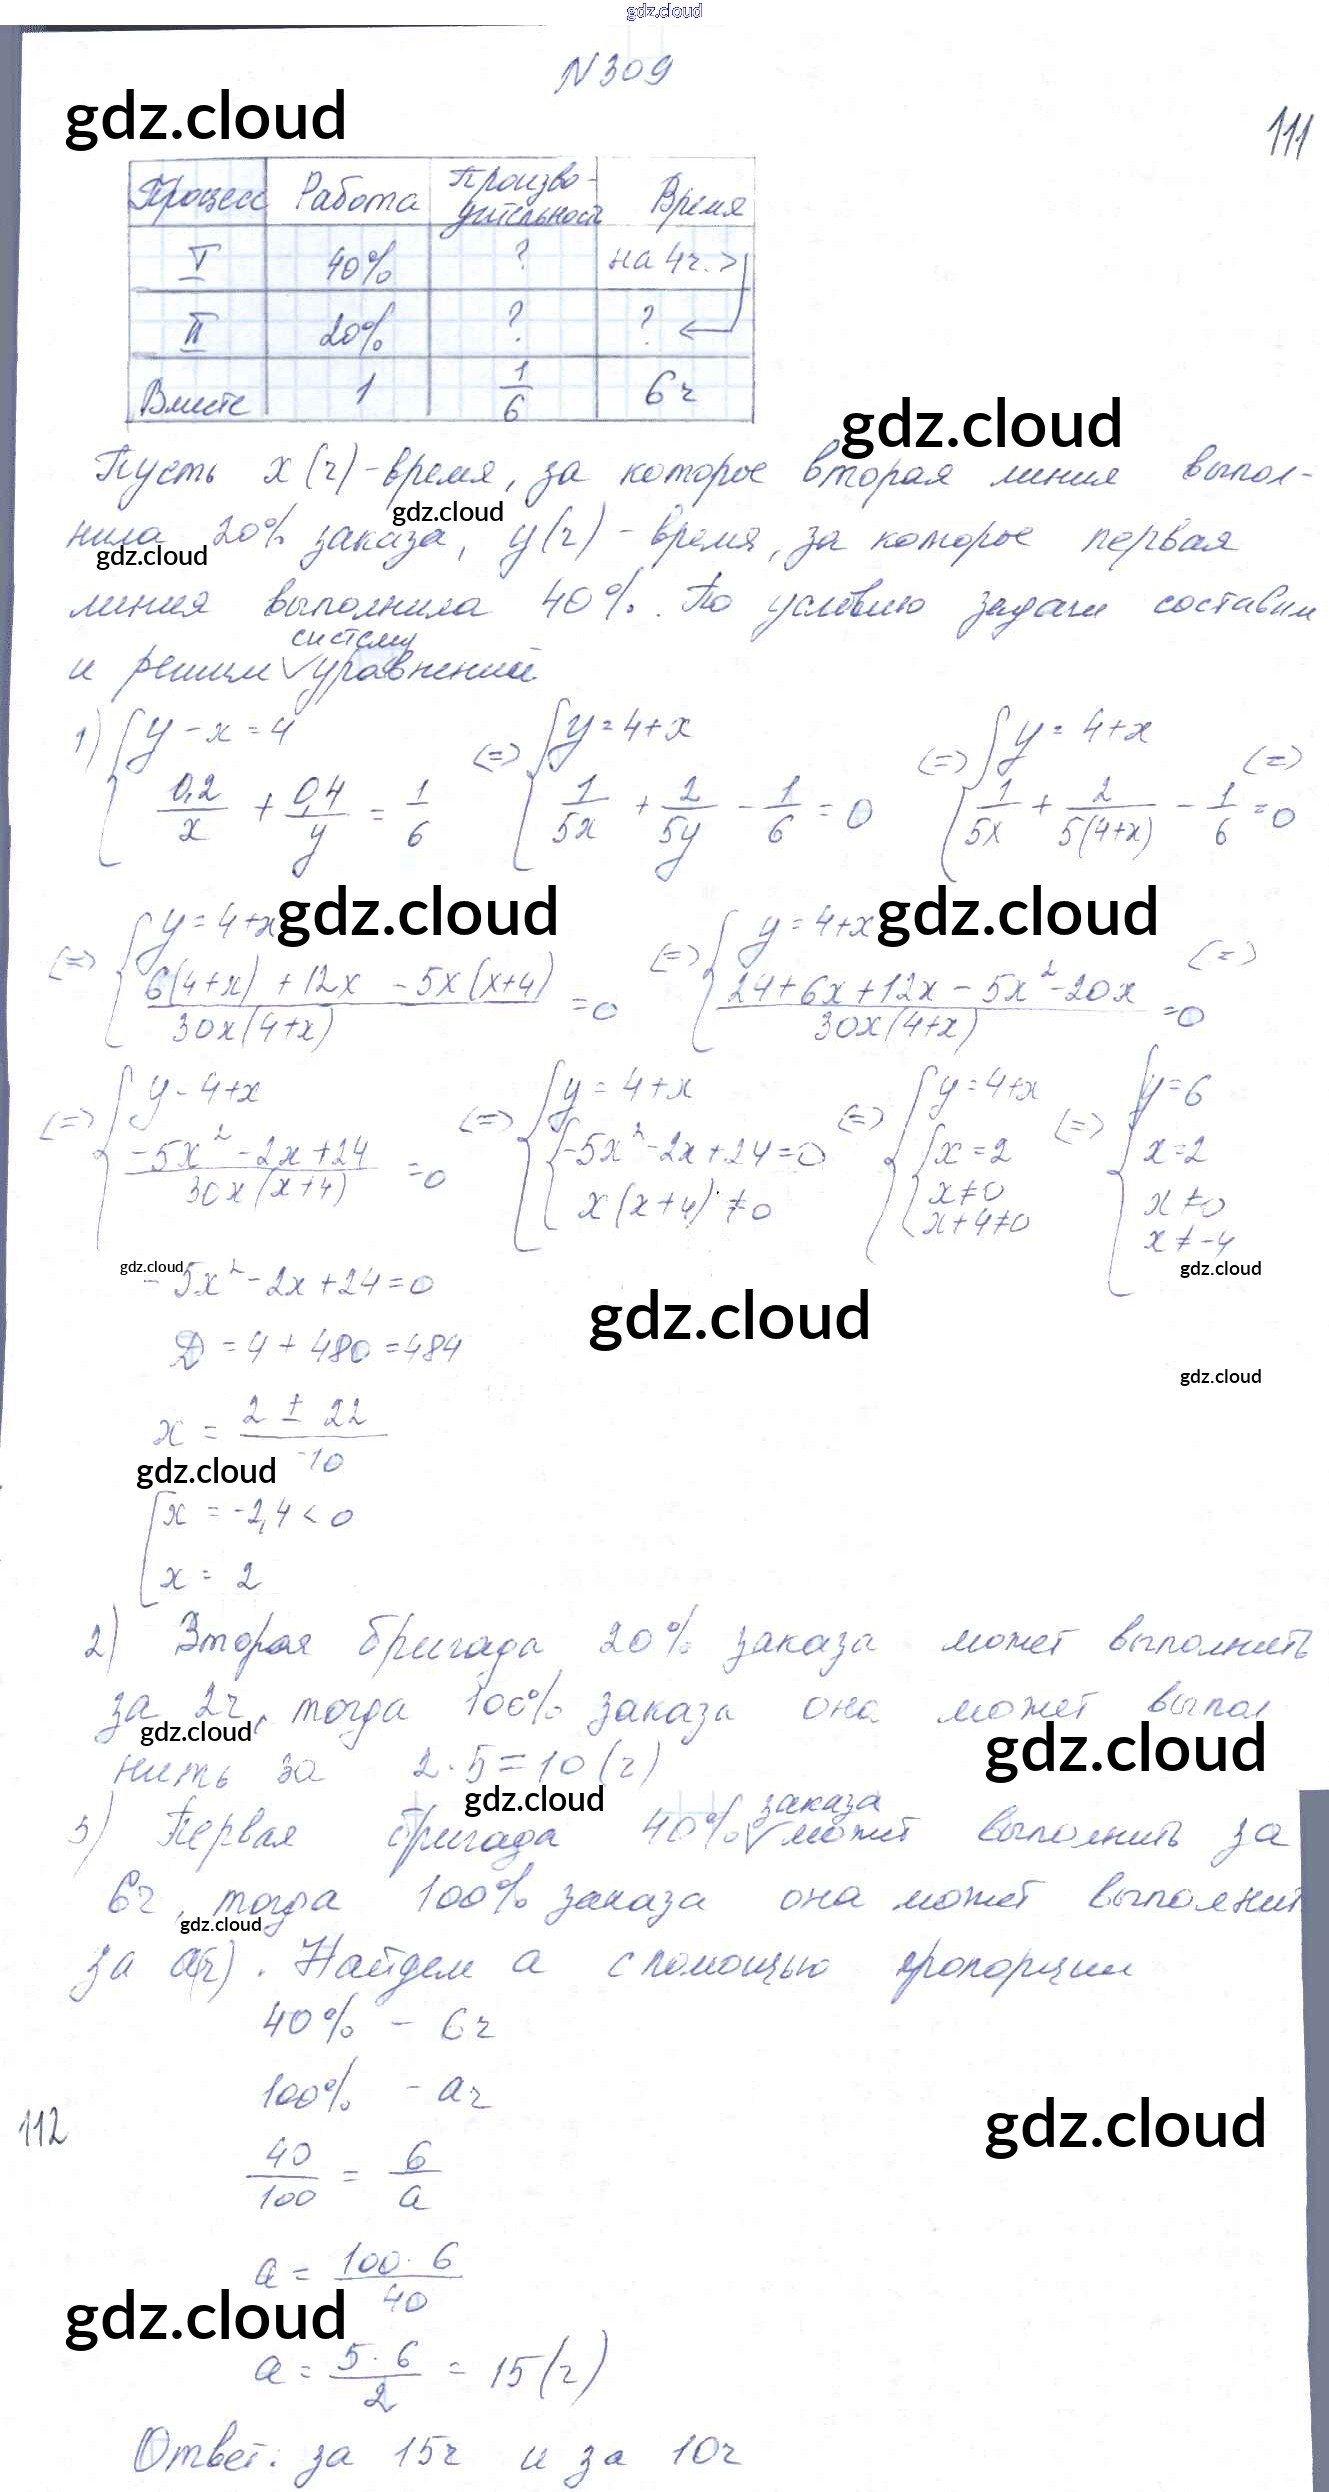 gdz.cloud
N309
gdz.cloud
111
Процесс Работа Произво- Время
дительность
I 40% ? на 4ч. >
II 20% ? ?
Вместе 1 1/6 6ч
gdz.cloud
Пусть x(ч) - время, за которое вторая линия выпол-
gdz.cloud
нила 20% заказа, y(ч) - время, за которое первая
gdz.cloud
линия выполнила 40%. По условию задачи составим
систему
и решим уравнений
1) { y - x = 4 (=) { y = 4 + x (=) { y = 4 + x (=)
{ 0,2/x + 0,4/y = 1/6 { 1/5x + 2/5y - 1/6 = 0 { 1/5x + 2/5(4+x) - 1/6 = 0
gdz.cloud gdz.cloud
(=) { y = 4 + x (=) { y = 4 + x (=)
{ 6(4+x) + 12x - 5x(x+4) / 30x(4+x) = 0 { 24 + 6x + 12x - 5x² - 20x / 30x(4+x) = 0
(=) { y - 4 + x (=) { y = 4 + x (=) { y = 4 + x (=) { y = 6
{ -5x² - 2x + 24 / 30x(x+4) = 0 { -5x² - 2x + 24 = 0 { x = 2 { x = 2
x(x+4) ≠ 0 x ≠ 0 x ≠ 0
x + 4 ≠ 0 x ≠ -4
gdz.cloud gdz.cloud
- 5x² - 2x + 24 = 0
gdz.cloud
D = 4 + 480 = 484
gdz.cloud
x = 2 ± 22 / -10
gdz.cloud
[ x = -2,4 < 0
[ x = 2
2) Вторая бригада 20% заказа может выполнить
за 2ч, тогда 100% заказа она может выпол
gdz.cloud gdz.cloud
нить за 2·5 = 10(ч)
gdz.cloud
заказа
3) Первая бригада 40% может выполнить за
6ч, тогда 100% заказа она может выполнит
gdz.cloud
за a(ч). Найдем a с помощью пропорции
40% - 6ч
100% - aч
112
gdz.cloud
40/100 = 6/a
a = 100·6/40
gdz.cloud
a = 5·6/2 = 15(ч)
Ответ: за 15ч и за 10ч